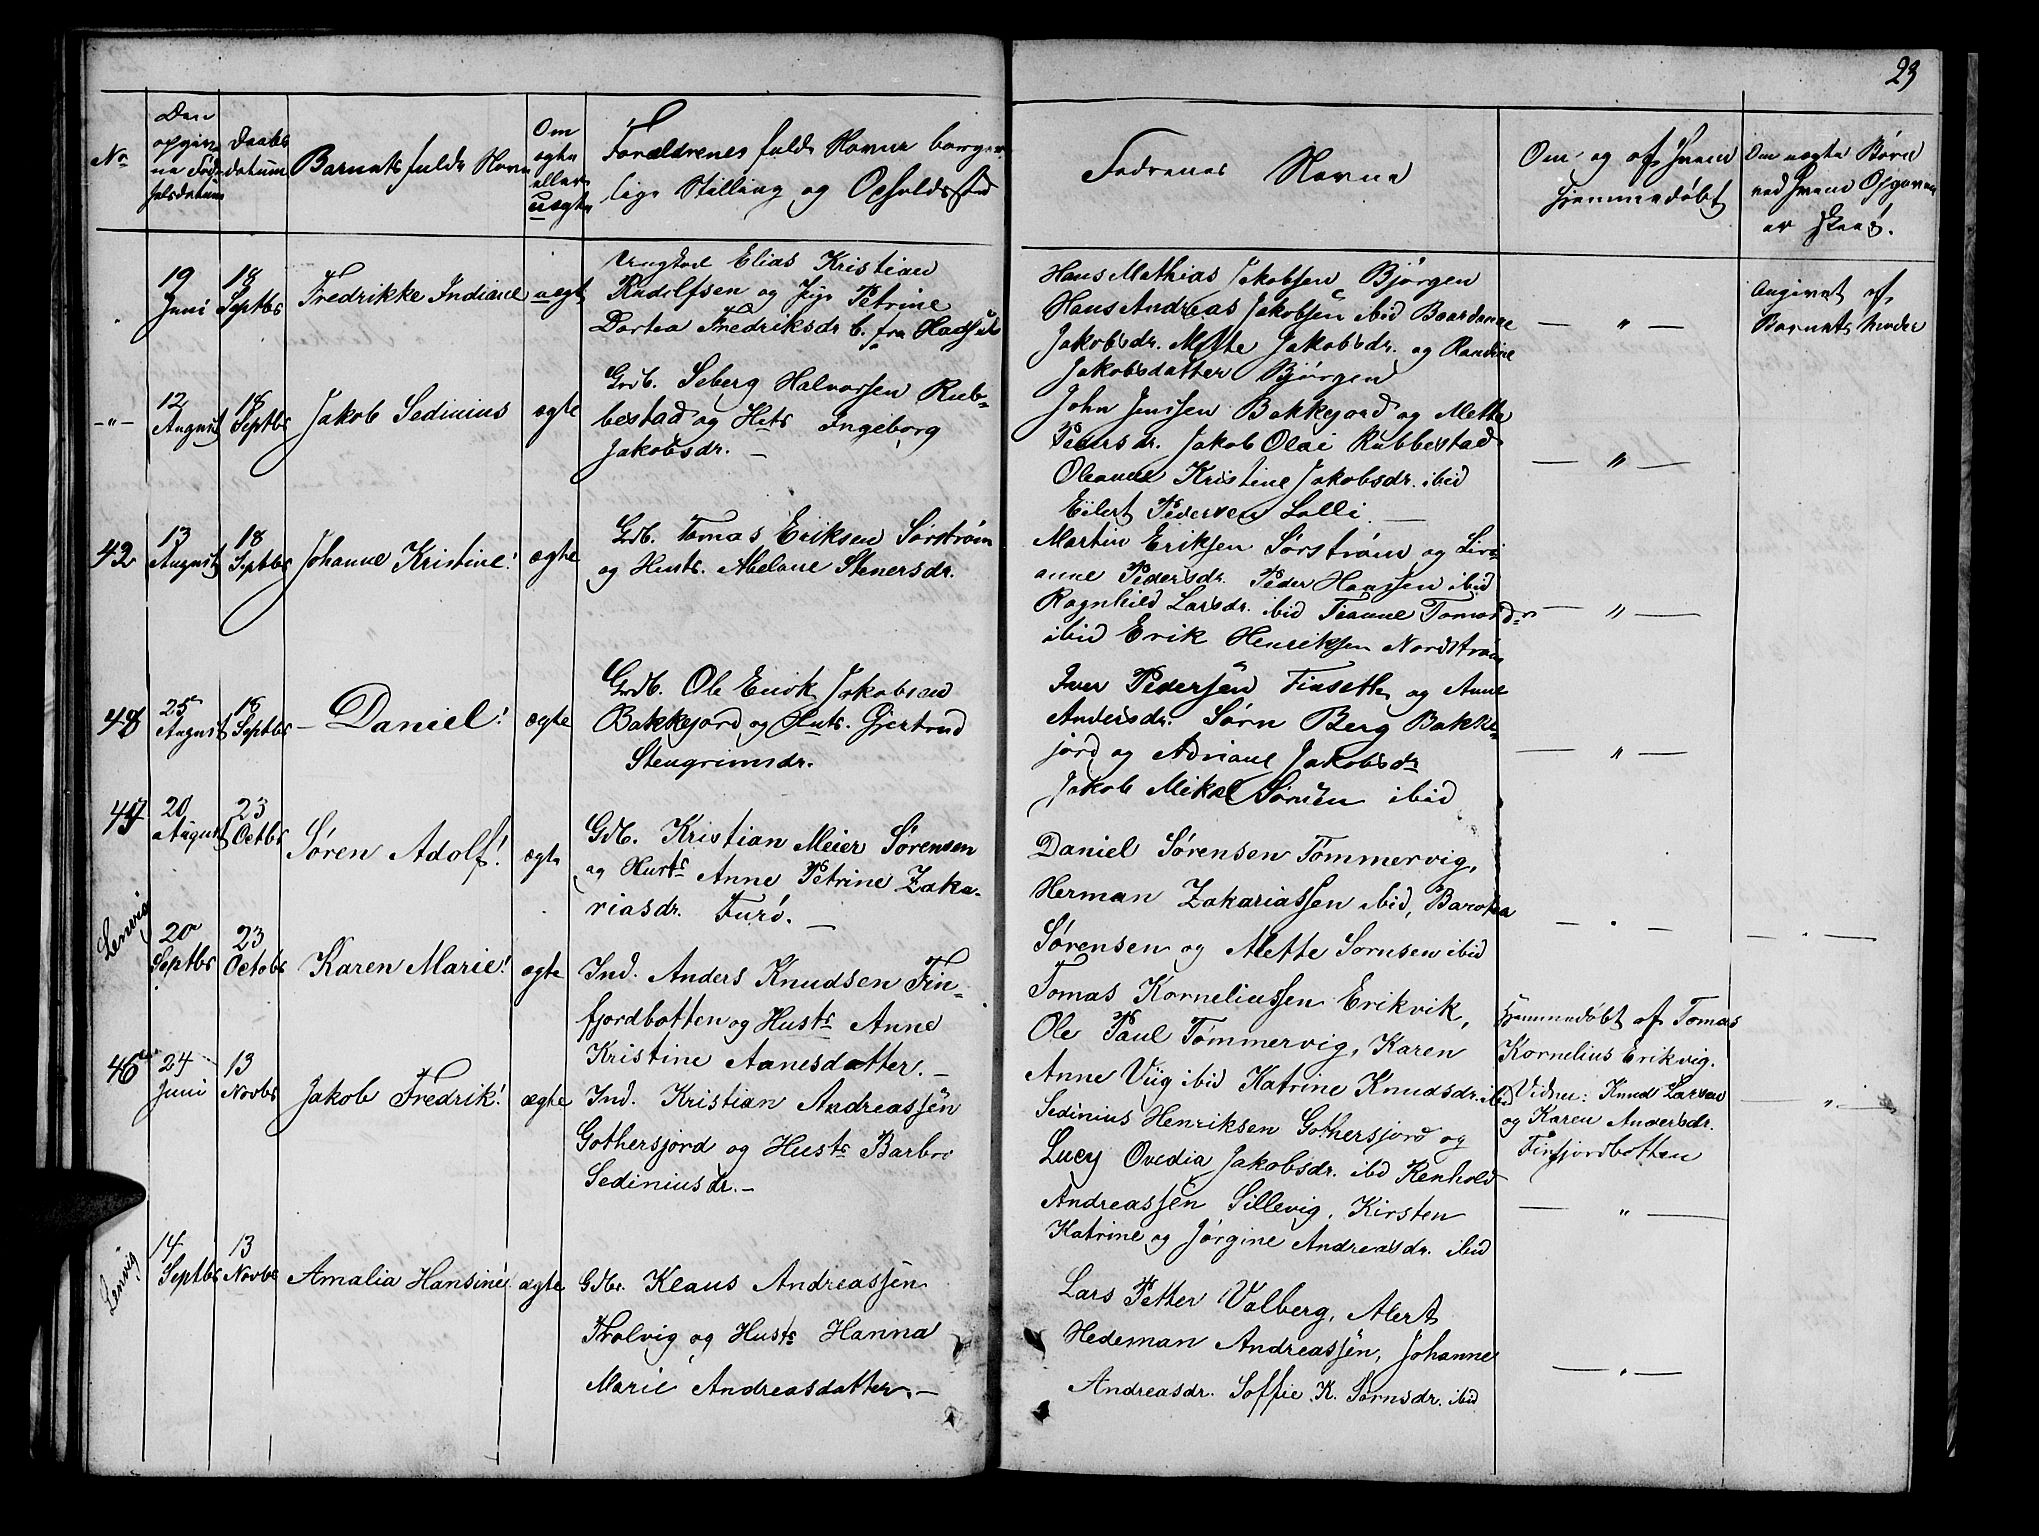 23
No
Den opgivne Fødselsdatum
Daabsdatum
Barnets fulde Navn
Om ægte eller uægte
Forældrenes fulde Navne borgerlige Stilling og Opholdssted
Fadrenes Navne
Om og af hvem hjemmedøbt
Om uægte Børn ved hvem Opgaven er skeed.
19 Juni
18 Septbr
Fredrikke Indiane
uægt
Ungkarl Elias Kristian
Rudolfsen og Pige Petrine
Dortea Fredriksdr b. fra Hadsel
Hans Mathias Jakobsen Bjørgen
Hans Andreas Jakobsen ibid Baardine
Jakobsdr. Mette Jakobsdr. og Randine
Jakobsdatter Bjørgen
— " —
Angivet af
Barnets Moder
— " —
12 August
18 Septbr
Jakob Sedinius
ægte
Grdb. Seberg Halvorsen Rub-
bestad og Hust Ingeborg
Jakobsdr. —
John Jensen Bakkejord og Mette
Pedersdr. Jakob Olai Rubbestad
Oleanne Kristine Jakobsdr. ibid
Eilert Pedersen Lalli —
— " —
42
13 August
18 Septbr
Johanne Kristine!
ægte
Grdb. Tomas Eriksen Sørstrøm
og Hust. Abelone Stenersdr.
Martin Eriksen Sørstrøm og Livi-
anne Pedersdr. Peder Hansen ibid
Ragnhild Larsdr. ibid Teanne Tomasdr
ibid Erik Henriksen Nordstrøm
— " —
48
25 August
18 Septbr
— Daniel!
ægte
Grdb. Ole Enok Jakobsen
Bakkejord og Hust. Gjertrud
Stengrimsdr.
Iver Pedersen Finseth og Anne
Andersdr. Sørn Berg Bakke-
jord og Adriane Jakobsdr
Jakob Mikal Sørnsen ibid
— " —
20 August
23 Octbr
Søren Adolf!
ægte
Gdb. Kristian Meier Sørensen
og Hustr Anne Petrine Zaka-
riasdr. Furø. —
Daniel Sørensen Tømmervig,
Herman Zakariassen ibid, Barolia
Sørensen og Mette Sørnsen ibid
— " —
— " —
Lenvig
20 Septbr
23 Octobr
Karen Marie!
ægte
Ind. Anders Knudsen Fin-
fjordbotten og Hustr Anne
Kristine Aanesdatter. —
Tomas Korneliussen Erikvik,
Ole Paul Tømmervig, Karen
Anne Viig ibid Katrine Knudsdr. ibid
Hjemmedøbt af Tomas
Kornelius Erikvig.
Vidner: Knud Larsen
og Karen Andersdr.
Finfjordbotten
— " —
46
24 Juni
13 Novbr
Jakob Fredrik!
ægte
Ind. Kristian Andreassen
Gothersjord og Hustr Barbro
Sediniusdr. —
Sedinius Henriksen Gothersjord og
Lucy Ovedia Jakobsdr. ibid Renhold
Andreassen Sillevig, Kirsten
Katrine og Jørgine Andreasdr. ibid
— " —
Lenvig
14 Septbr
13 Novbr
Amalia Hansine!
ægte
Gdbr. Klaus Andreassen
Trolvig og Hustr Hanna
Marie Andreasdatter. —
Lars Petter Valberg, Alert
Hedeman Andreassen, Johanne
Andreasdr. Soffie K. Sørnsdr. ibid
— " —